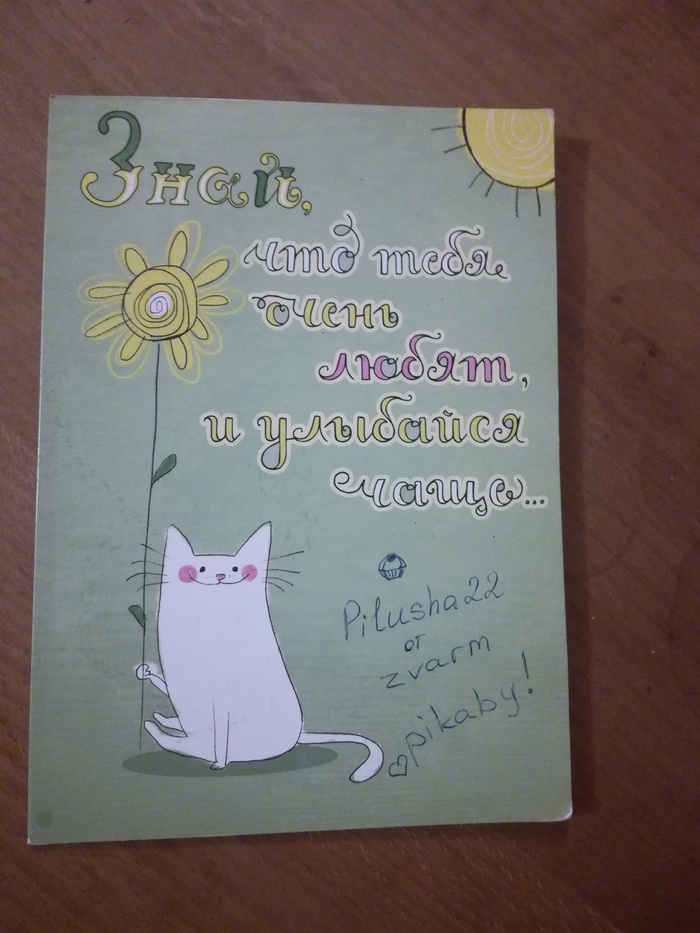 Знай,
что тебя
очень
любят,
и улыбайся
чаще...
Pilusha22
от
zvarm
pikaby!